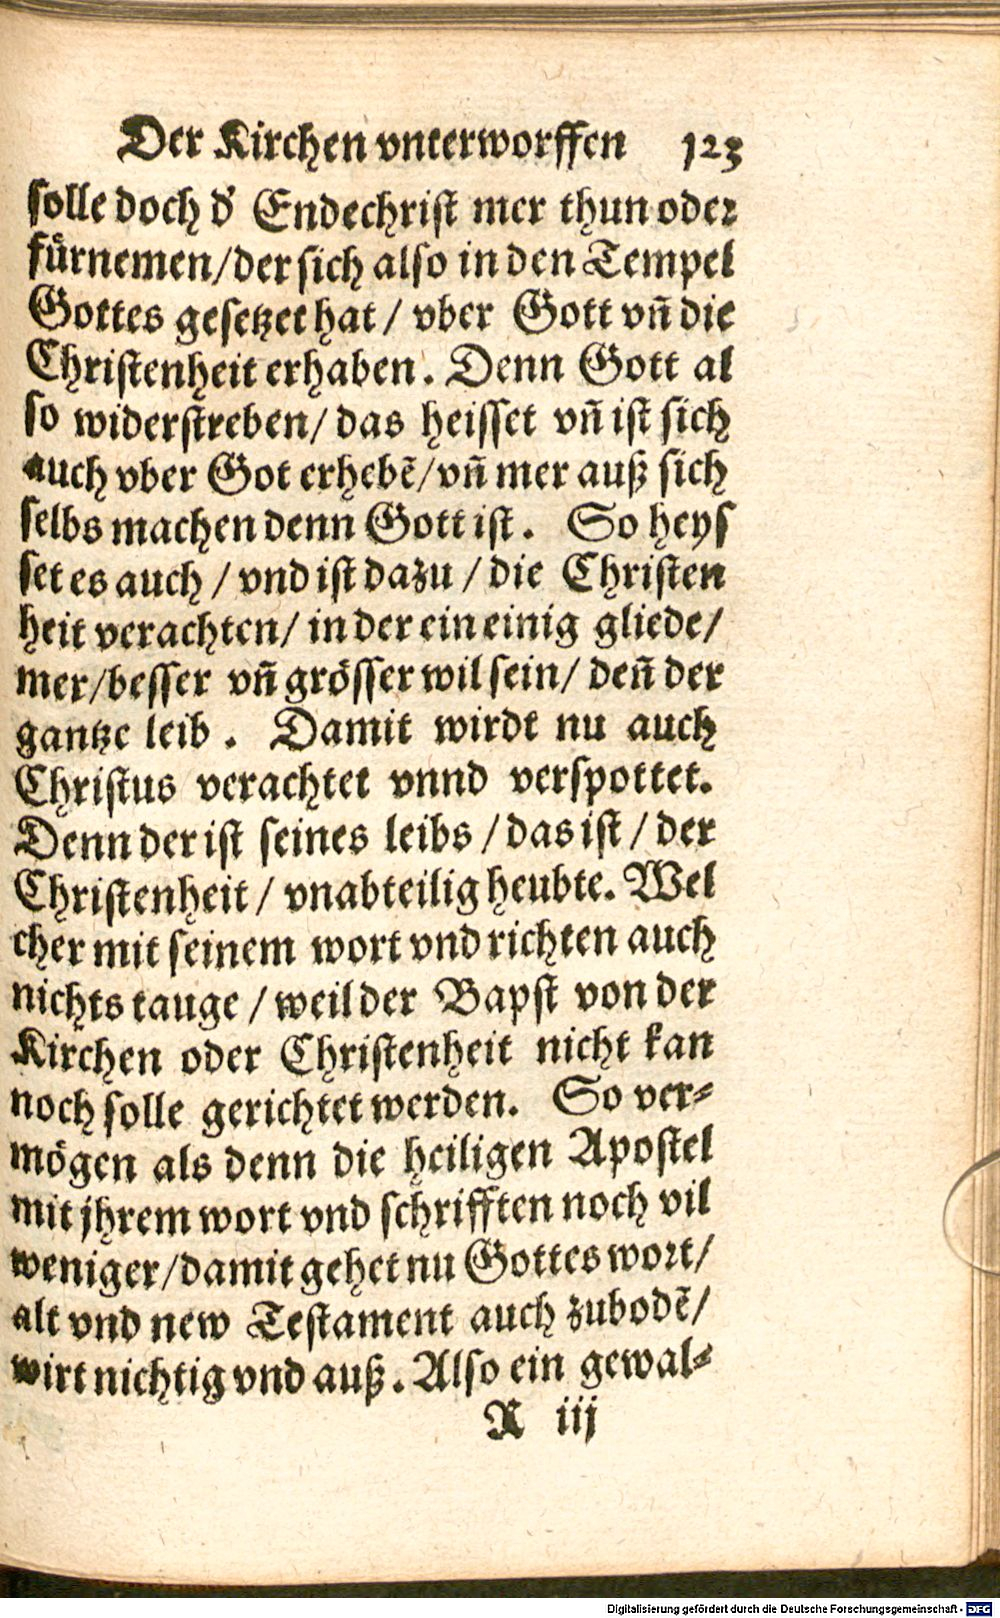 Der Kirchen vnterworffen 123
solle doch d' Endechrist mer thun oder
fürnemen/der sich also in den Tempel
Gottes gesetzet hat / vber Gott vñ die
Christenheit erhaben. Denn Gott al
so widerstreben/ das heisset vñ ist sich
auch vber Got erhebẽ/vñ mer auß sich
selbs machen denn Gott ist. So heys
set es auch / vnd ist dazu / die Christen
heit verachten/ in der ein einig gliede/
mer/besser vñ grösser wil sein/ deñ der
gantze leib . Damit wirdt nu auch
Christus verachtet vnnd verspottet.
Denn der ist seines leibs / das ist / der
Christenheit / vnabteilig heubte. Wel
cher mit seinem wort vnd richten auch
nichts tauge / weil der Bapst von der
Kirchen oder Christenheit nicht kan
noch solle gerichtet werden. So ver-
mögen als denn die heiligen Apostel
mit jhrem wort vnd schrifften noch vil
weniger/damit gehet nu Gottes wort/
alt vnd new Testament auch zubodẽ/
wirt nichtig vnd auß. Also ein gewal-
R iij
Digitalisierung gefördert durch die Deutsche Forschungsgemeinschaft - DFG